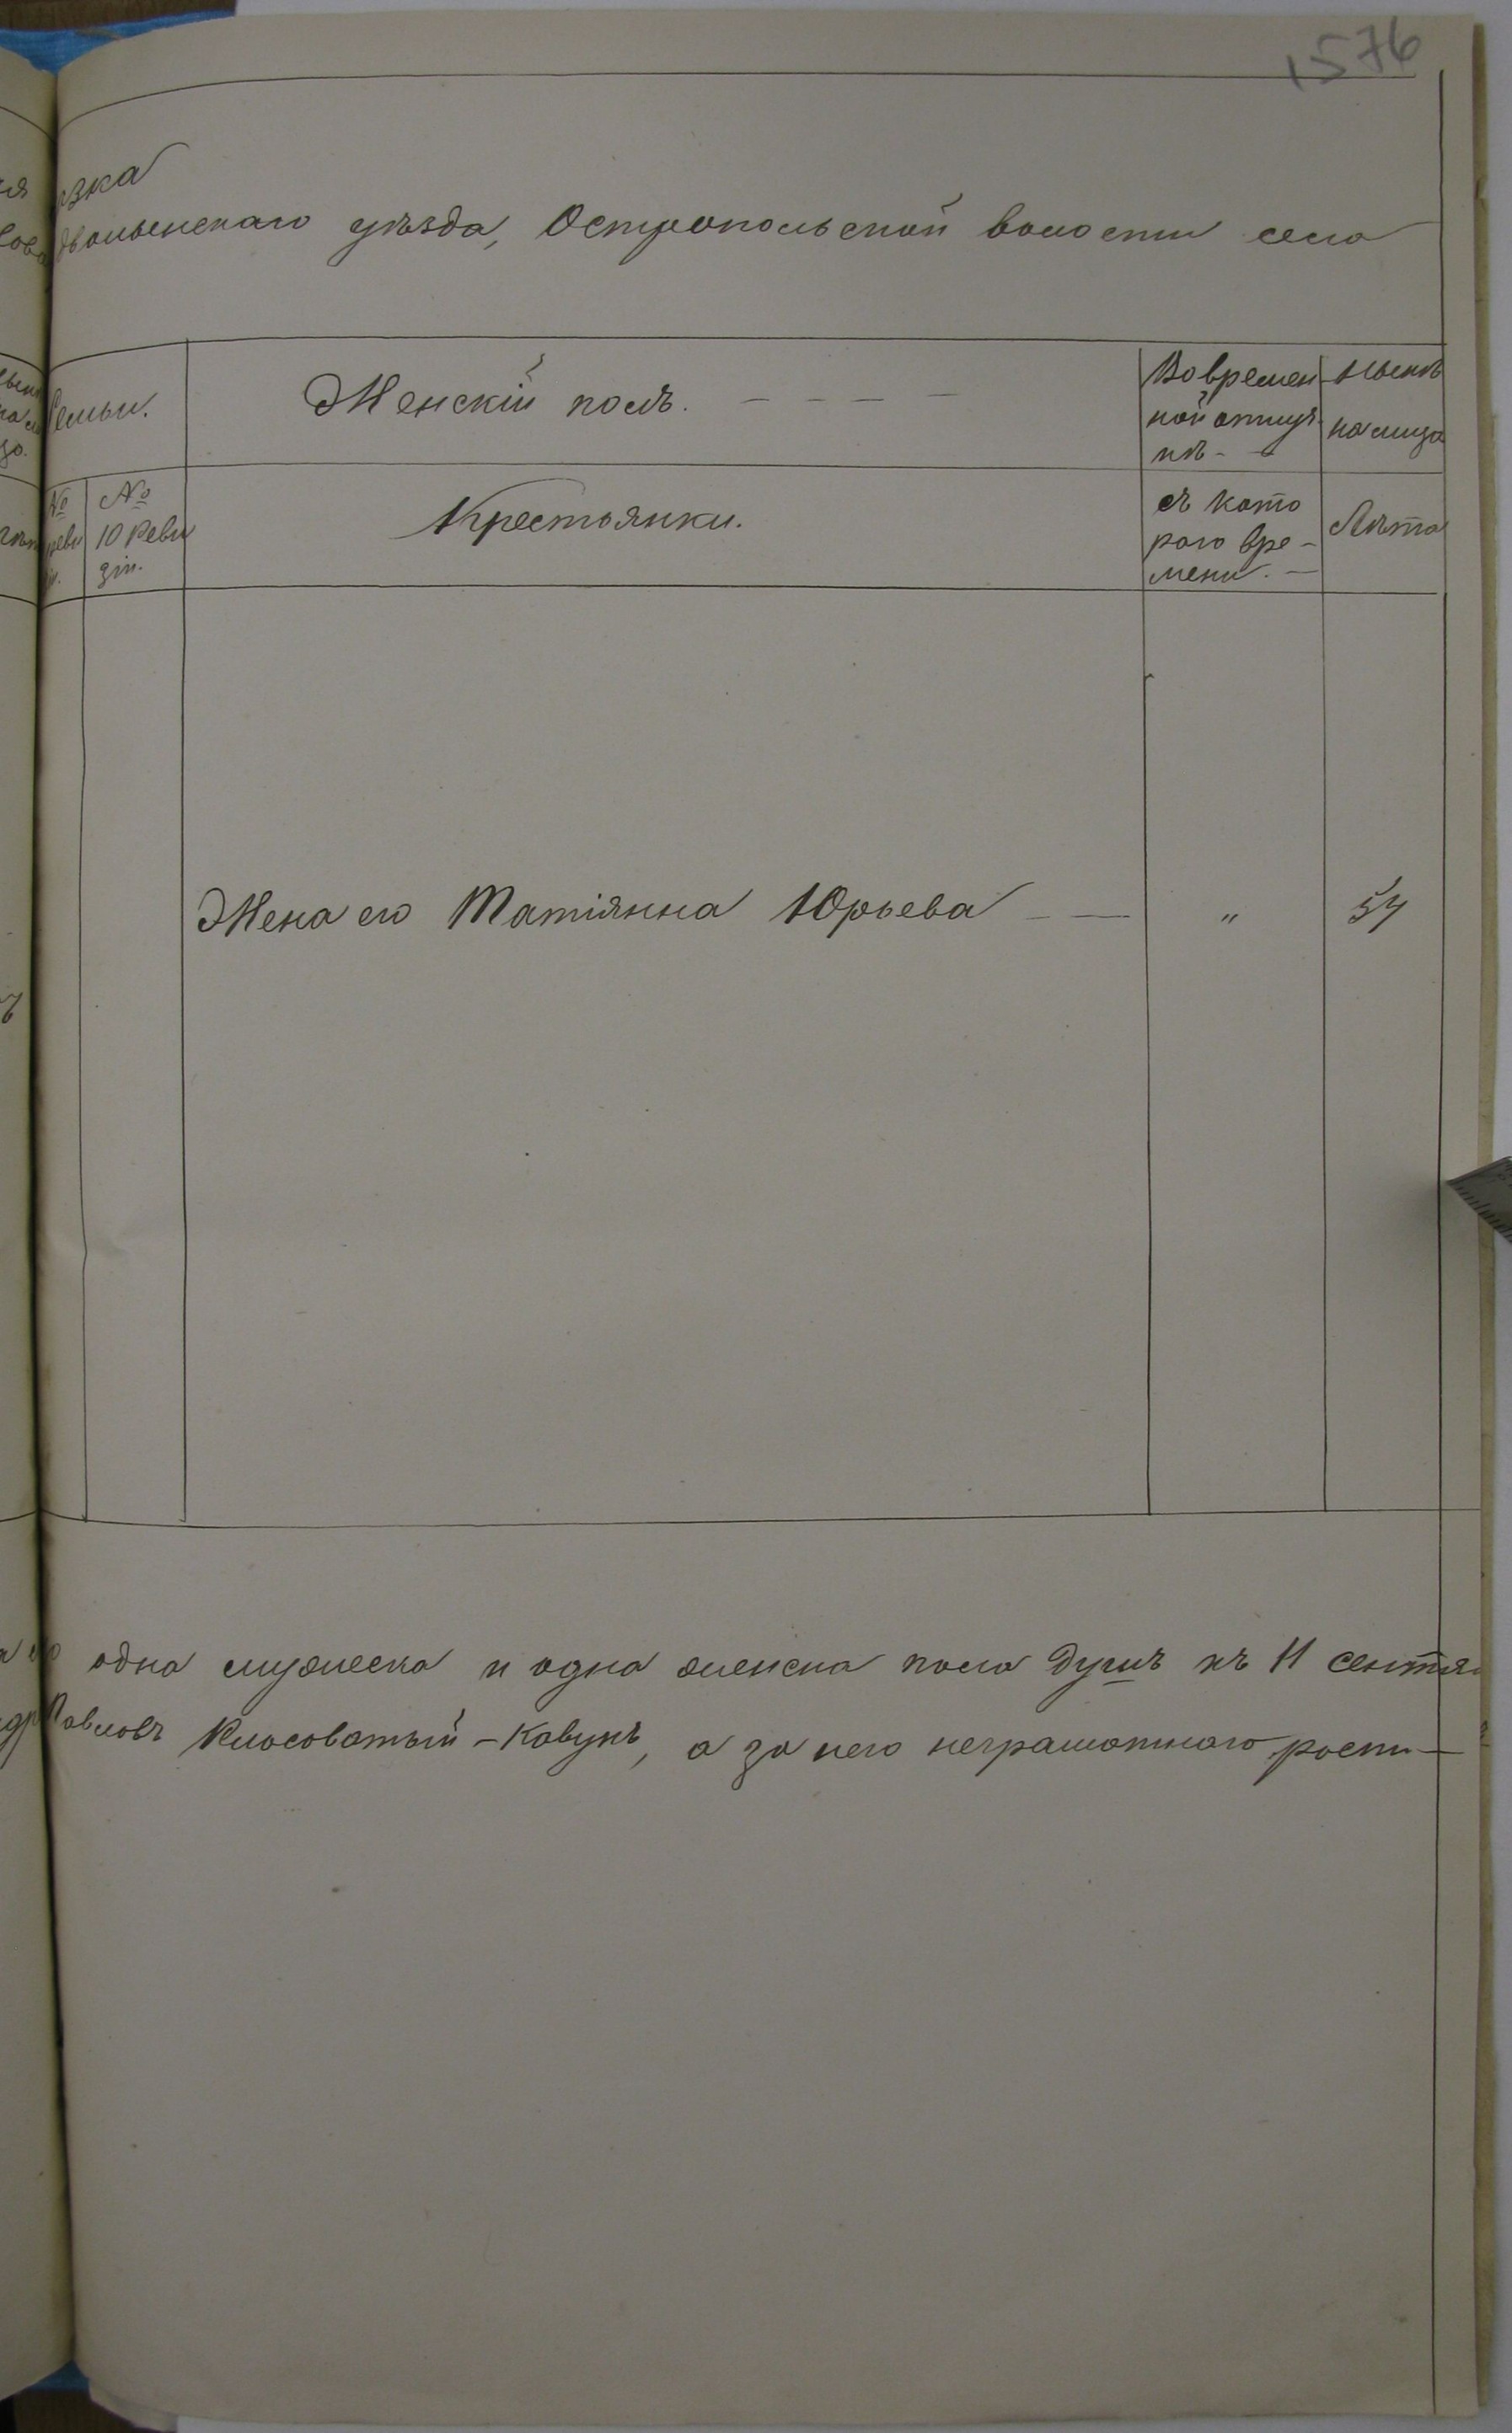 1576
зка
дволынскаго уѣзда, Остропольской волости села
Семьи.
Женскій полъ. - - - -
Во времен
ной отлуч
кѣ -
Нынѣ
на лицо
№
реви
№
10 Реви
зіи.
Крестьянки.
съ кото
раго вре-
мени. -
Лѣта
Жена его Татіянна Юрьева - - " 54
одна мужеска и одна женска пола душъ къ 11 сентя
Павловъ Клосоватый - Кавунъ, а за него неграмотнаго роспи-